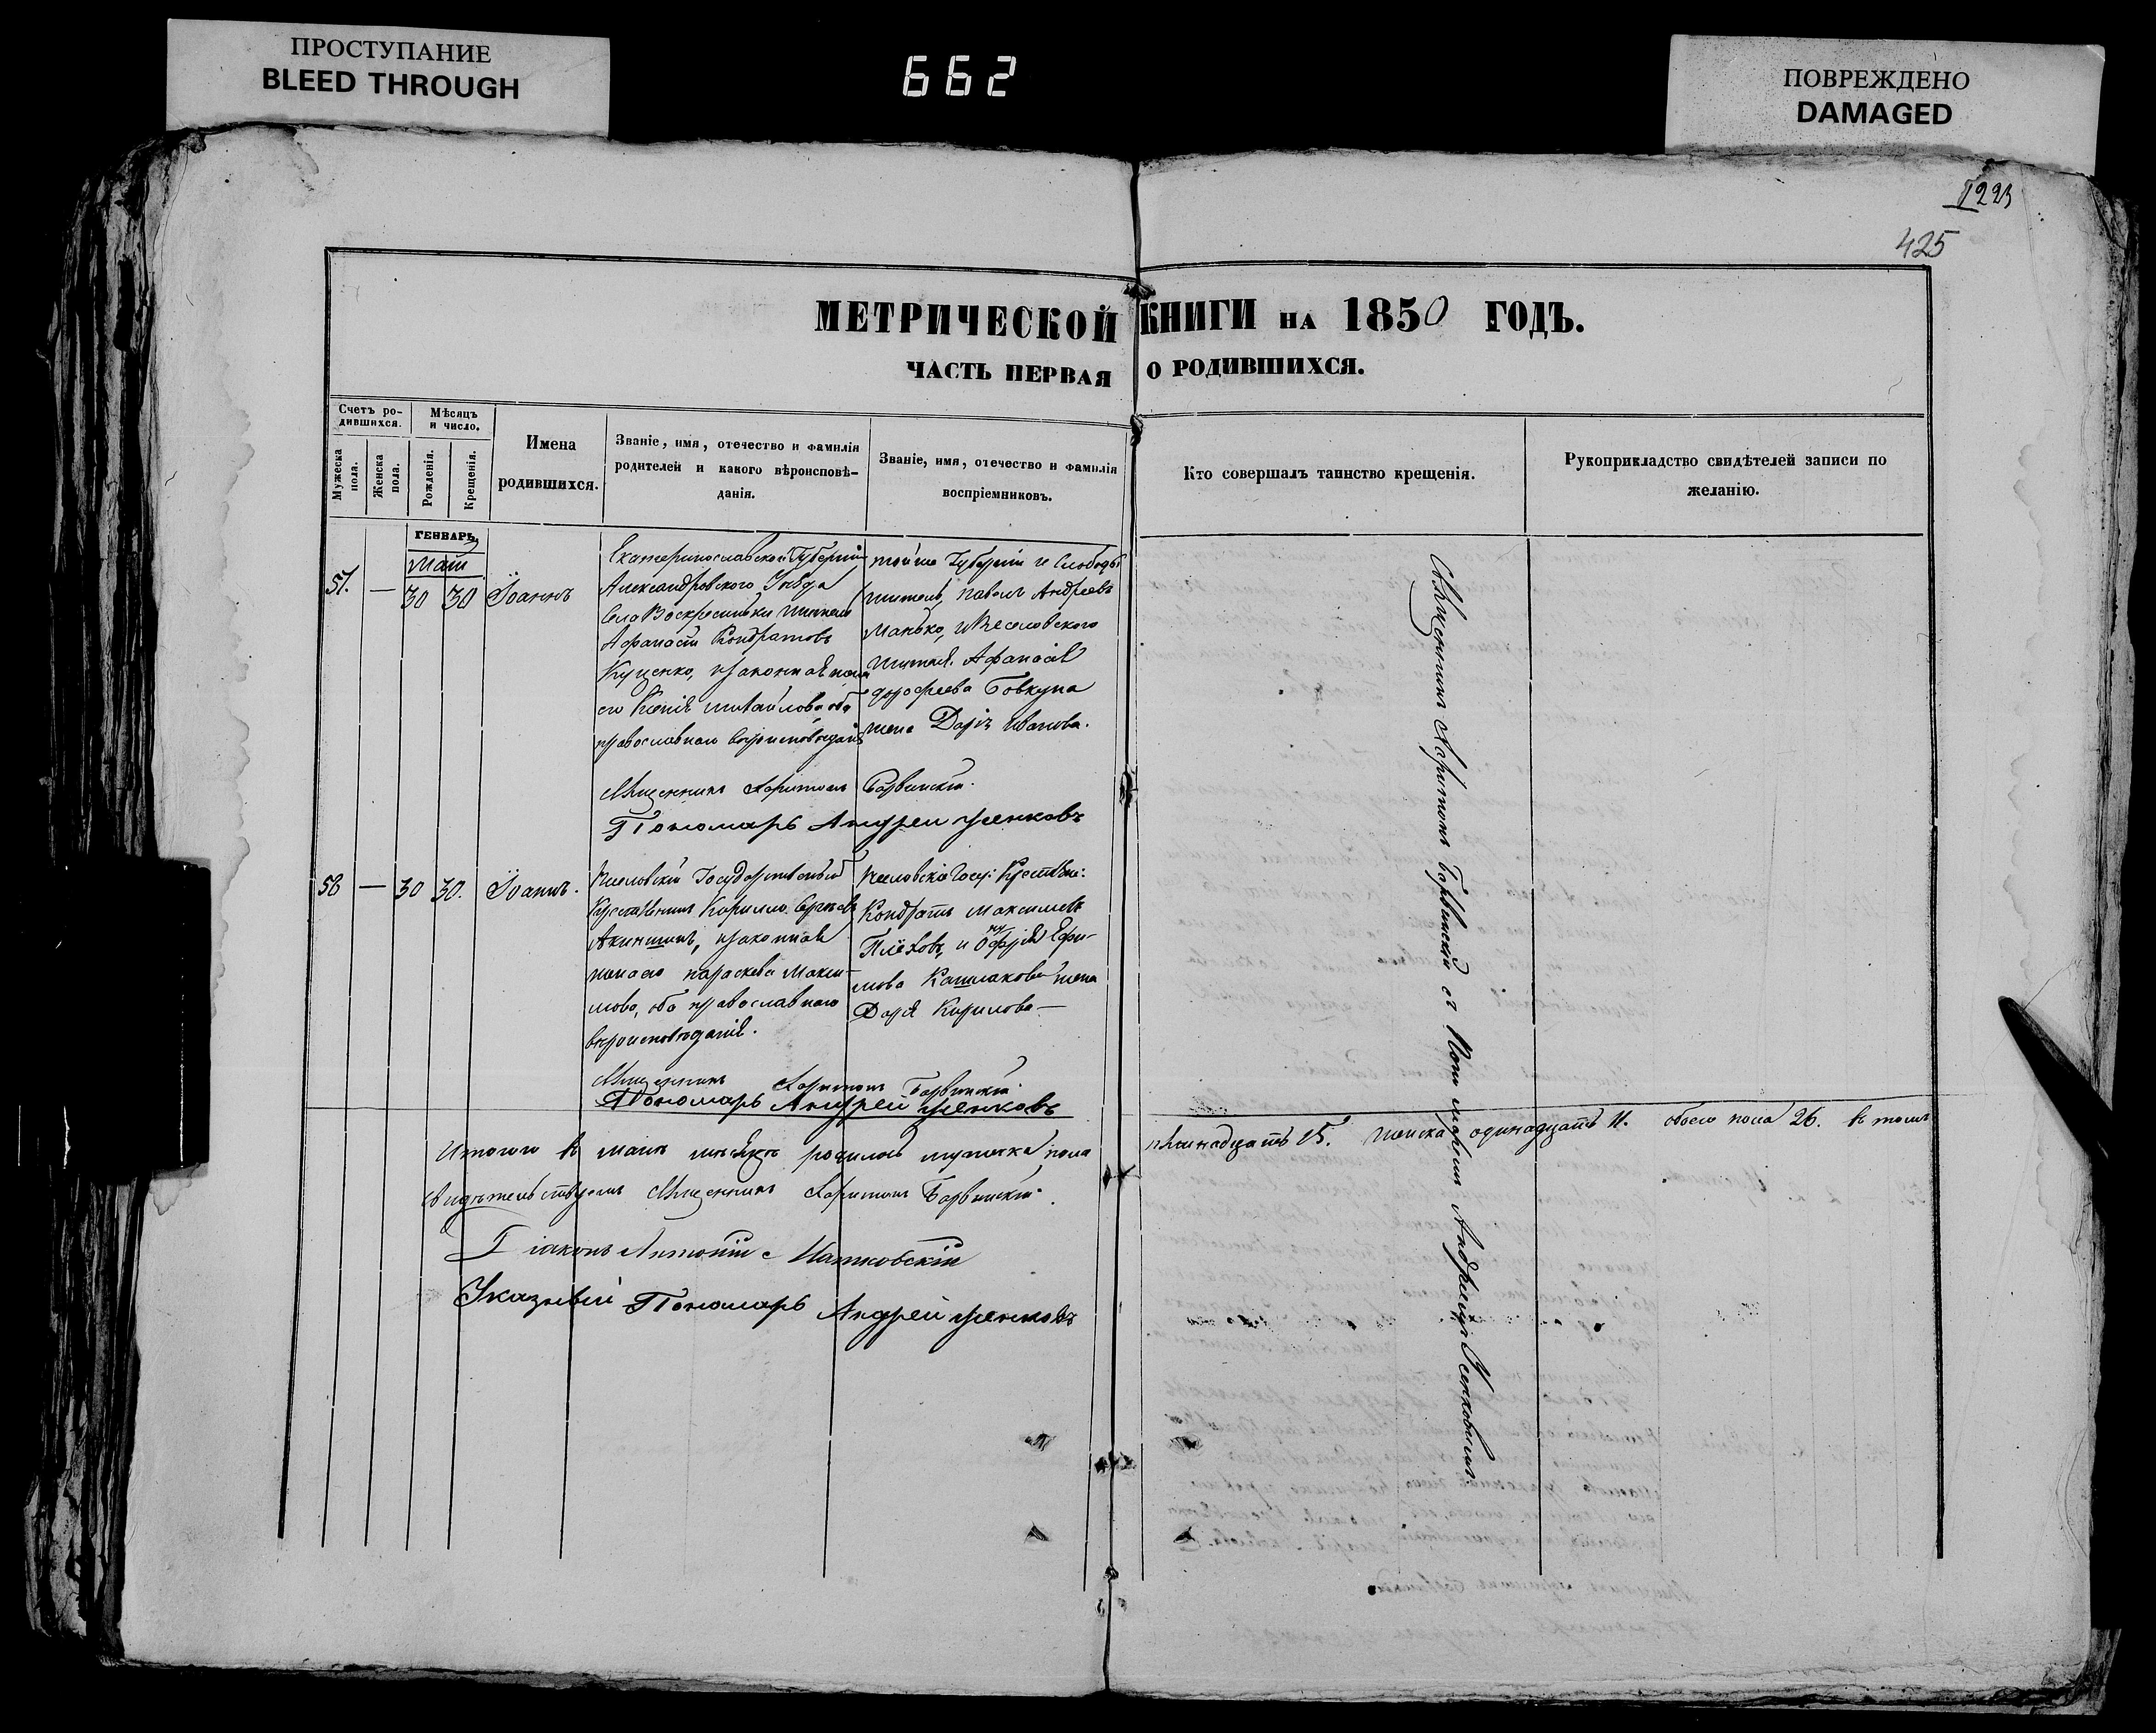 ПРОСТУПАНИЕ
BLEED THROUGH
662
ПОВРЕЖДЕНО
DAMAGED
1223
425
МЕТРИЧЕСКОЙ КНИГИ НА 1850 ГОДЪ.
ЧАСТЬ ПЕРВАЯ О РОДИВШИХСЯ.
Счетъ ро-
дившихся.
Мужеска
пола.
Женска
пола.
Мѣсяцъ
и число.
Рожденія.
Крещенія.
Имена
родившихся.
Званіе, имя, отечество и фамилія
родителей и какого вѣроисповѣ-
данія.
Званіе, имя, отечество и фамилія
воспріемниковъ.
Кто совершалъ таинство крещенія.
Рукоприкладство свидѣтелей записи по
желанію.
ГЕНВАРЬ
Маій
57. — 30 30 Іоаннъ
Екатеринославской Губерніи
Александровского Уѣзда
Села Воскресенки
Афанасій Кондратовъ
Куценко, законная жена
его Ксенія Михайлова, оба
православнаго вѣроисповѣданія
тойже Губерніи и Слободы
житель, Павелъ Андреевъ
Манько,
Афанасія
дорофеева Бовкуна
жена Дарія Иванова.
Священникъ Харитонъ Барвинскій.
Пономарь Андрей Усенковъ
58 — 30 30. Іоаннъ.
Государственный
Крестьянинъ Кирилло
Акиншинъ, законная
жена его параскева Макси-
мова, оба православнаго
вѣроисповѣданія.
Кондратъ Максимовъ
и Ефи-
мова жена
Дарія Кирилова —
Священникъ Харитонъ Барвинскій
Пономарь Андрей Усенковъ
Священникъ Харитонъ Барвинскій съ Пономаремъ Андреемъ Усенковымъ.
Итого въ маіи мѣсяцѣ родилось мужеска пола пятнадцать 15. женска одинадцать 11. обоего пола 26. въ томъ
свидѣтельствуемъ Священникъ Харитонъ Барвинскій.
Діаконъ Антоній
Указный Пономарь Андрей Усенковъ